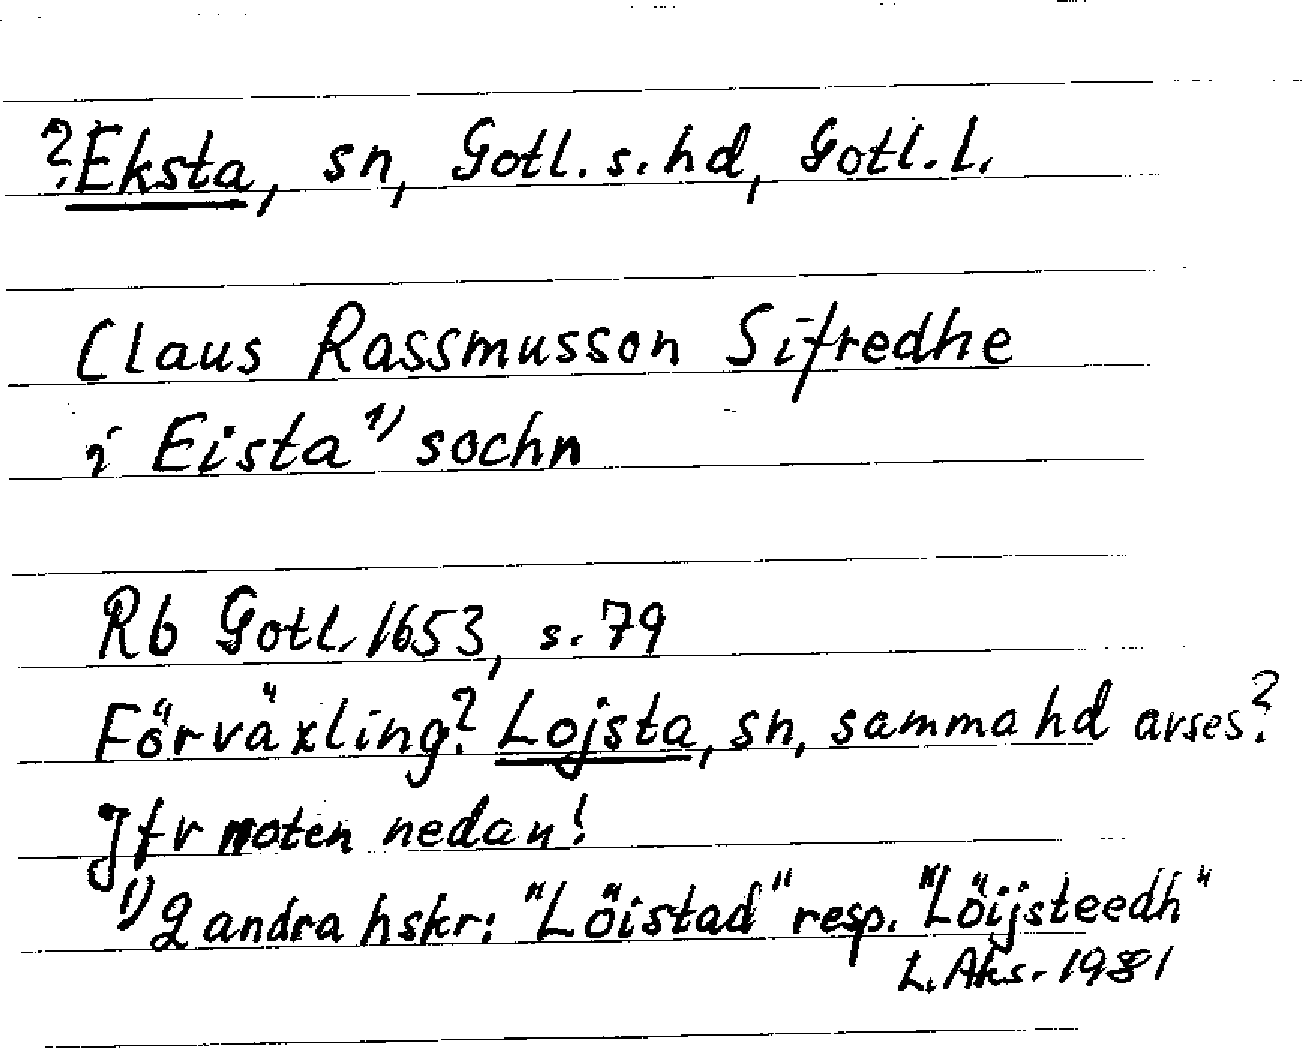 ?Eksta, sn, Gotl. s. hd, Gotl. l.
Claus Rassmusson Sifredhe
i Eista 1) sochn
Rb Gotl. 1653, s. 79
Förväxling? Lojsta, sn, samma hd avses?
Jfr noten nedan!
1) 2 andra hskr: "Löistad" resp. "Löijsteedh"
L. Aks. 1981